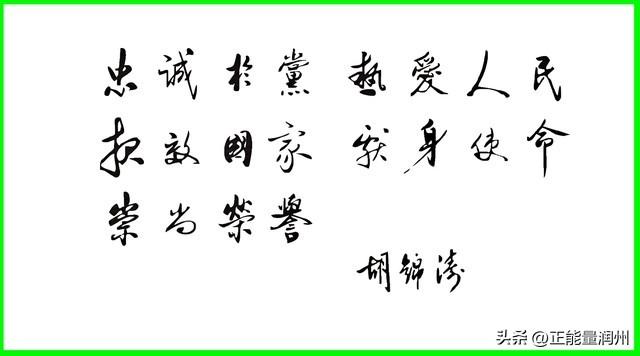 忠誠於黨 熱愛人民
报效國家 献身使命
崇尚榮譽
胡錦濤
头条 @正能量润州